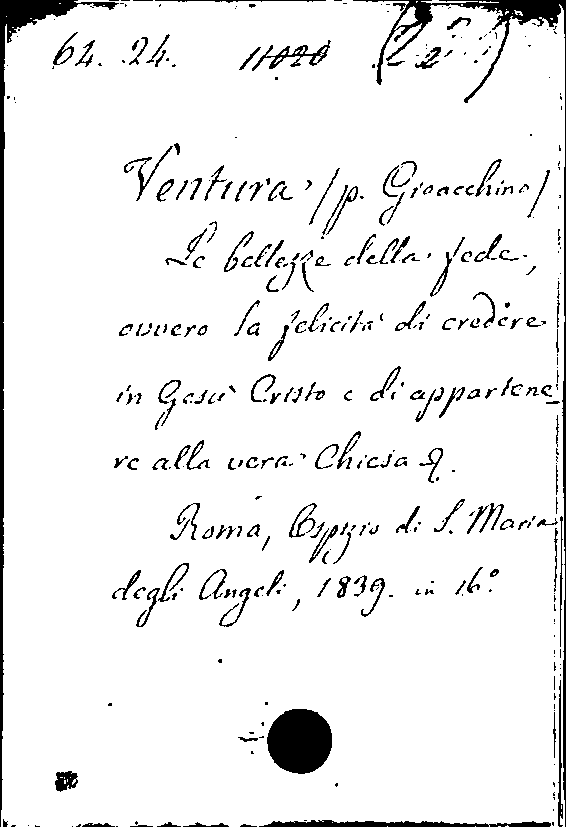 64. 24. 11020
Ventura /p. Gioacchino/
Le bellezze della fede,
ovvero la felicità di credere
in Gesù Cristo e di appartene_
re alla vera Chiesa &.
Roma, Ospizio di S. Maria
degli Angeli, 1839. in 16.°